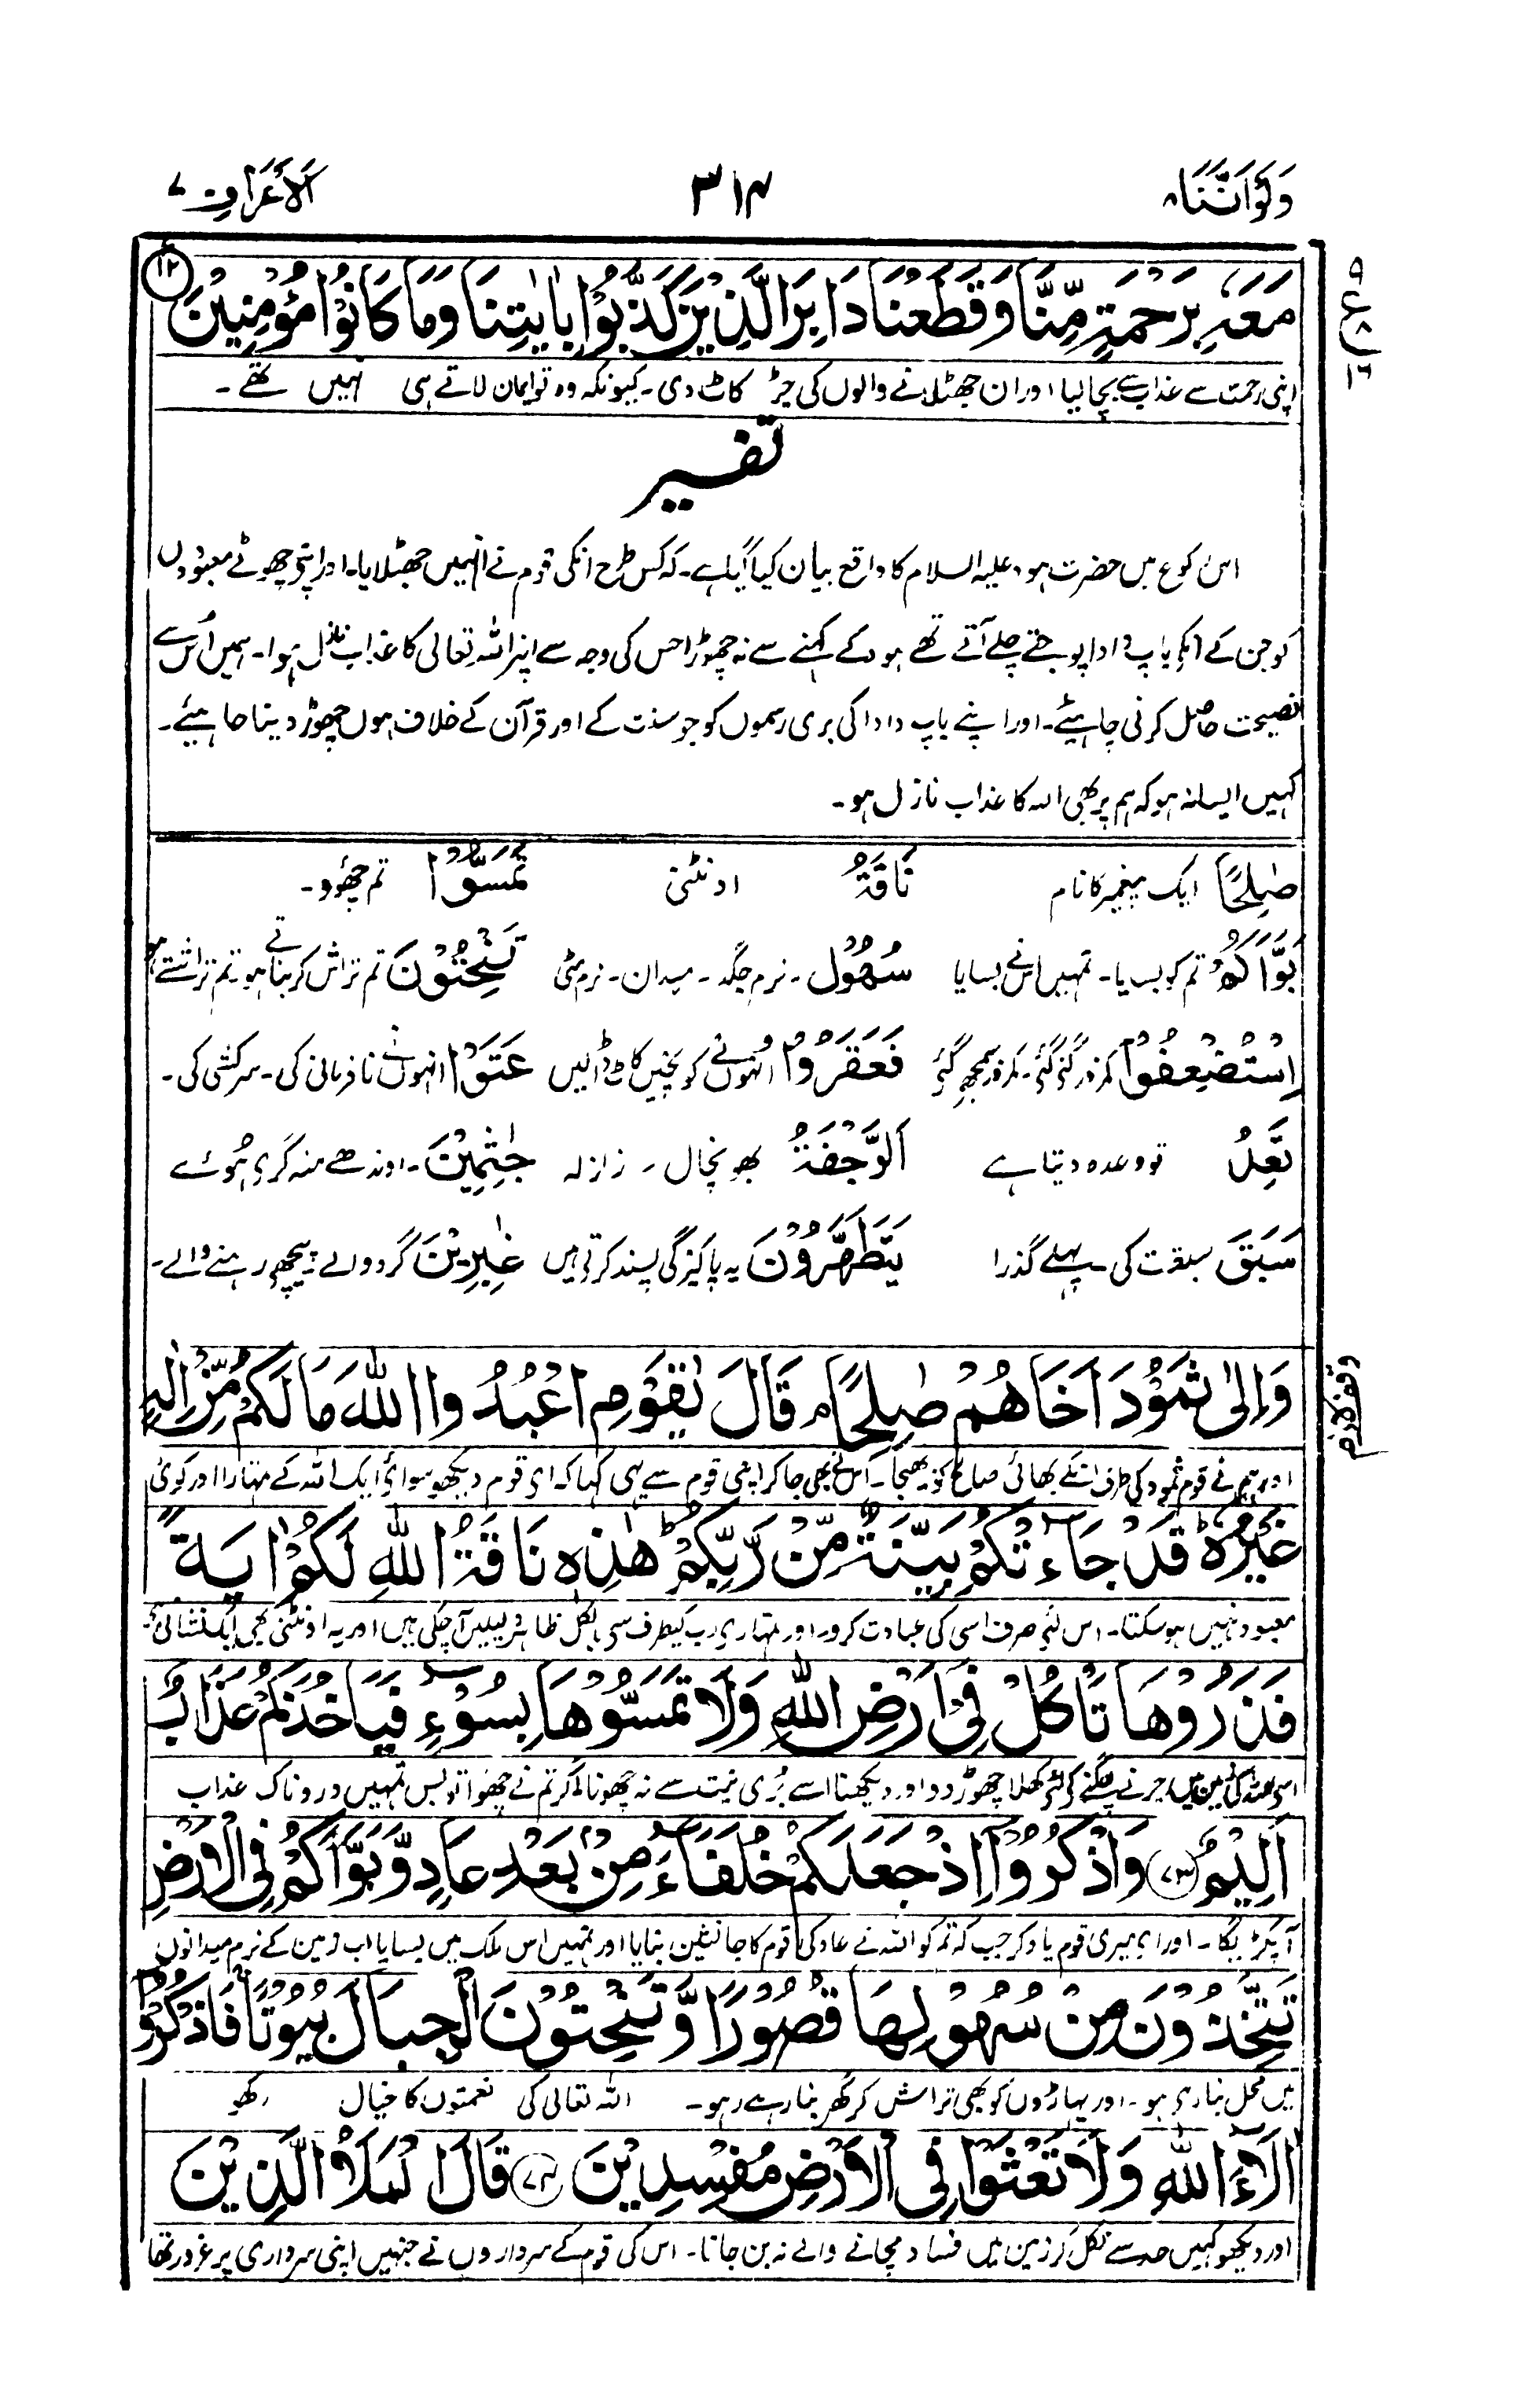 وَلَوْ اَنَّنَا ۸ ۳۱۴ اَلْاَعْرَاف ۷
مَعَهٗ بِرَحْمَةٍ مِّنَّا وَقَطَعْنَا دَابِرَ الَّذِيْنَ كَذَّبُوْا بِاٰيٰتِنَا وَمَا كَانُوْا مُؤْمِنِيْنَ ۷۲
اپنی رحمت سے عذاب سے بچا لیا اور ان جھٹلانے والوں کی جڑ کاٹ دی۔ کیونکہ وہ تو ایمان لاتے ہی نہیں تھے۔
تفسیر
اس رکوع میں حضرت ہود علیہ السلام کا واقع بیان کیا گیا ہے۔ کہ کس طرح انکی قوم نے انہیں جھٹلایا۔ اور اپنے جھوٹے معبودوں
کو جن کے انکے باپ دادا پوجتے چلے آتے تھے ہود کے کہنے سے نہ چھوڑا جس کی وجہ سے ان پر اللہ تعالی کا عذاب نازل ہوا۔ ہمیں اُس سے
نصیحت حاصل کرنی چاہیئے۔ اور اپنے باپ دادا کی بری رسموں کو جو سنت کے اور قرآن کے خلاف ہوں چھوڑ دینا چاہیئے۔
کہیں ایسا نہ ہو کہ ہم پر بھی اللہ کا عذاب نازل ہو۔
صٰلِحًا ایک پیغمبر کا نام نَاقَةُ اونٹنی تَمَسُّوْا تم چھوؤ۔
بَوَّاَكُمْ تم کو بسایا۔ تمہیں اس نے بسایا سُهُوْل ۔ نرم جگہ ۔ میدان ۔ نرم مٹی تَنْحِتُوْنَ تم تراش کر بناتے ہو۔ تم تراشتے ہو
اِسْتُضْعِفُوْا کمزور گنے گئے۔ کمزور سمجھے گئے فَعَقَرُوْا انہوں نے کونچیں کاٹ ڈالیں عَتَوْا انہوں نے نافرمانی کی۔ سرکشی کی۔
تَعِدُ تو وعدہ دیتا ہے اَلرَّجْفَةُ بھونچال ۔ زلزلہ جٰثِمِيْنَ ۔ اوندھے منہ گرے ہُوئے
سَبَقَ سبقت کی۔ پہلے گذرا يَتَطَهَّرُوْنَ یہ پاکیزگی پسند کرتے ہیں غٰبِرِيْنَ گرد والے پیچھے رہنے والے۔
وَاِلٰى ثَمُوْدَ اَخَاهُمْ صٰلِحًا م قَالَ يٰقَوْمِ اعْبُدُوا اللّٰهَ مَا لَكُمْ مِّنْ اِلٰهٍ
اور ہم نے قوم ثمود کی طرف انکے بھائی صالح کو بھیجا۔ اس نے بھی جا کر اپنی قوم سے یہی کہا کہ اے قوم دیکھو سوائے ایک اللہ کے تمہارا اور کوئی
غَيْرُهٗ ط قَدْ جَآءَتْكُمْ بَيِّنَةٌ مِّنْ رَّبِّكُمْ ط هٰذِهٖ نَاقَةُ اللّٰهِ لَكُمْ اٰيَةً
معبود نہیں ہو سکتا۔ اس لئے صرف اسی کی عبادت کرو۔ اور تمہارے رب کیطرف سے بالکل ظاہر دلیلیں آ چکی ہیں اور یہ اونٹنی بھی ایک نشانی ہے
فَذَرُوْهَا تَاْكُلْ فِيْٓ اَرْضِ اللّٰهِ وَلَا تَمَسُّوْهَا بِسُوْٓءٍ فَيَاْخُذَكُمْ عَذَابٌ
اسے اللہ کی زمین میں چرنے چگنے کے لئے کھلا چھوڑ دو اور دیکھنا اسے بُری نیت سے نہ چھونا اگر تم نے چھوا تو بس تمہیں دردناک عذاب
اَلِيْمٌ ۷۳ وَاذْكُرُوْٓا اِذْ جَعَلَكُمْ خُلَفَآءَ مِنْۢ بَعْدِ عَادٍ وَّبَوَّاَكُمْ فِى الْاَرْضِ
آ پکڑیگا۔ اور اے میری قوم یاد کر جب کہ تم کو اللہ نے عاد کی قوم کا جانشین بنایا اور تمہیں اس ملک میں بسایا اب زمین کے نرم میدانوں
تَتَّخِذُوْنَ مِنْ سُهُوْلِهَا قُصُوْرًا وَّتَنْحِتُوْنَ الْجِبَالَ بُيُوْتًا فَاذْكُرُوْٓا
میں محل بنا رہے ہو۔ اور پہاڑوں کو بھی تراش کر گھر بنا رہے رہو۔ اللہ تعالی کی نعمتوں کا خیال رکھو
اٰلَآءَ اللّٰهِ وَلَا تَعْثَوْا فِى الْاَرْضِ مُفْسِدِيْنَ ۷۴ قَالَ الْمَلَاُ الَّذِيْنَ
اور دیکھو کہیں حد سے نکل کر زمین میں فساد مچانے والے نہ بن جانا۔ اس کی قوم کے سرداروں نے جنہیں اپنی سرداری پر غرور تھا
وقف لازم